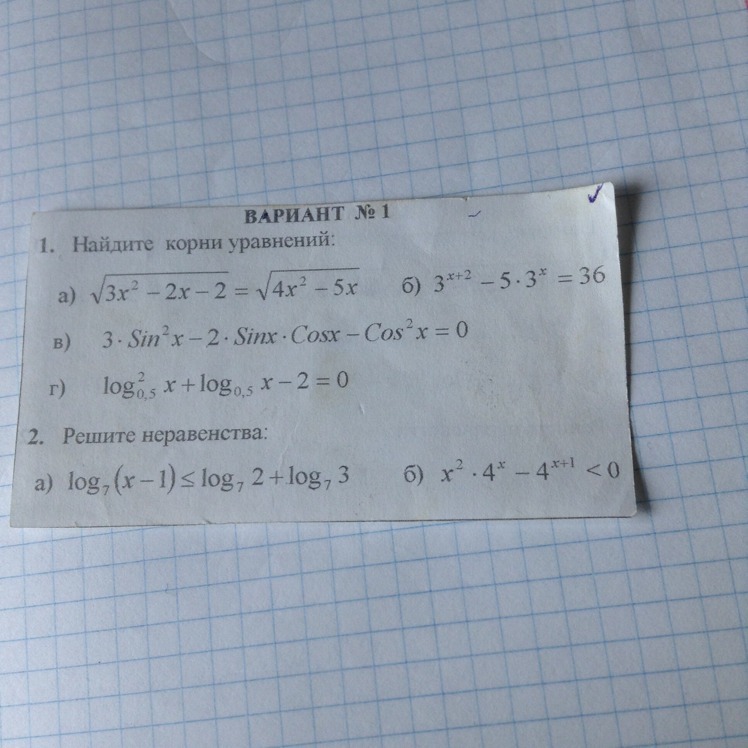 ВАРИАНТ № 1
1. Найдите корни уравнений:
а) √(3x² − 2x − 2) = √(4x² − 5x) б) 3^(x+2) − 5·3^x = 36
в) 3·Sin²x − 2·Sinx·Cosx − Cos²x = 0
г) log²_{0,5} x + log_{0,5} x − 2 = 0
2. Решите неравенства:
а) log₇(x − 1) ≤ log₇ 2 + log₇ 3 б) x²·4^x − 4^(x+1) < 0